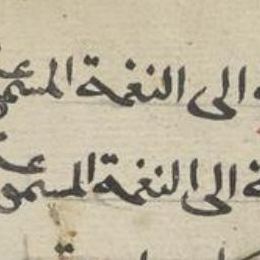 الى النغمة المسموعة
الى النغمة المسموعة